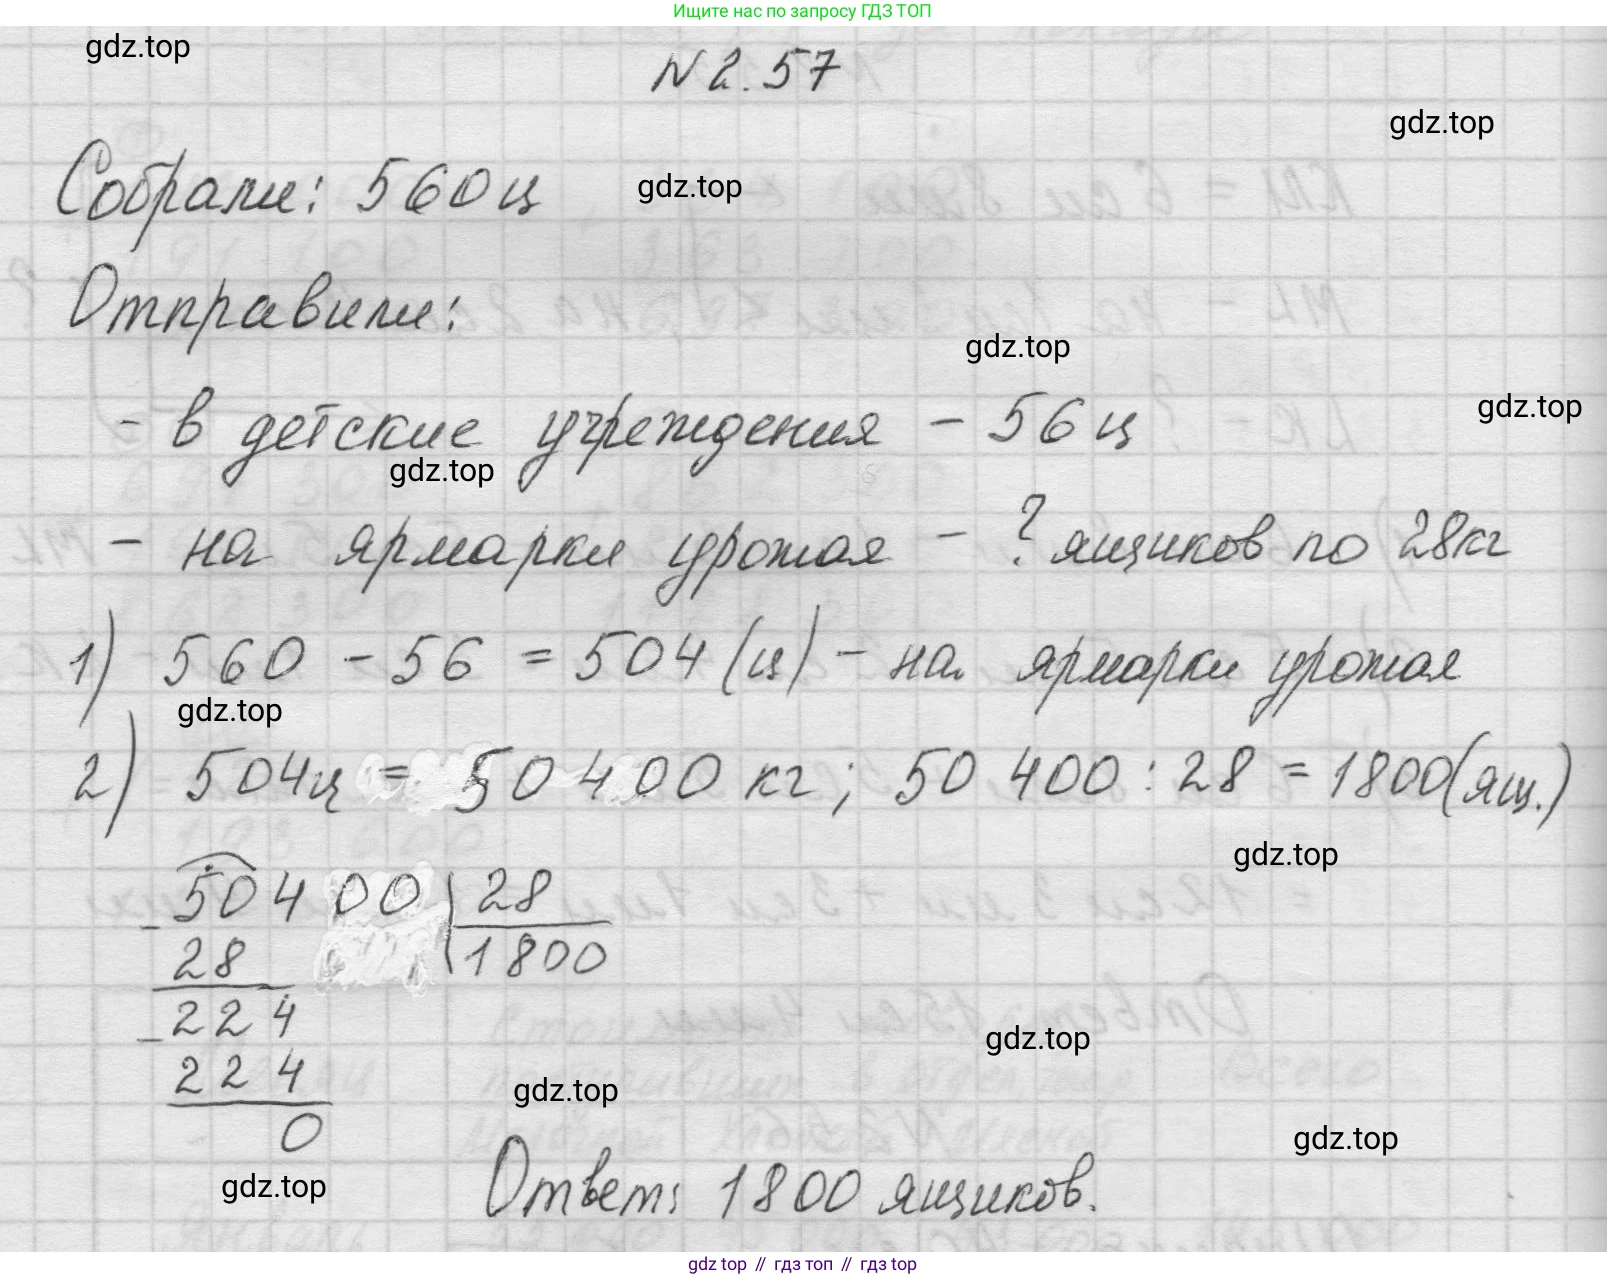 Ищите нас по запросу ГДЗ ТОП
gdz.top
N 2.57
gdz.top
Собрали: 560 ц
gdz.top
Отправили:
gdz.top
- в детские учреждения - 56 ц
gdz.top
gdz.top
- на ярмарки урожая - ? ящиков по 28 кг
1) 560 - 56 = 504 (ц) - на ярмарки урожая
gdz.top
2) 504 ц = 50 400 кг; 50 400 : 28 = 1800 (ящ.)
gdz.top
50400 28
- 28 1800
224
- 224
0
gdz.top
gdz.top
gdz.top
gdz.top
Ответ: 1800 ящиков.
gdz.top // гдз топ // гдз top